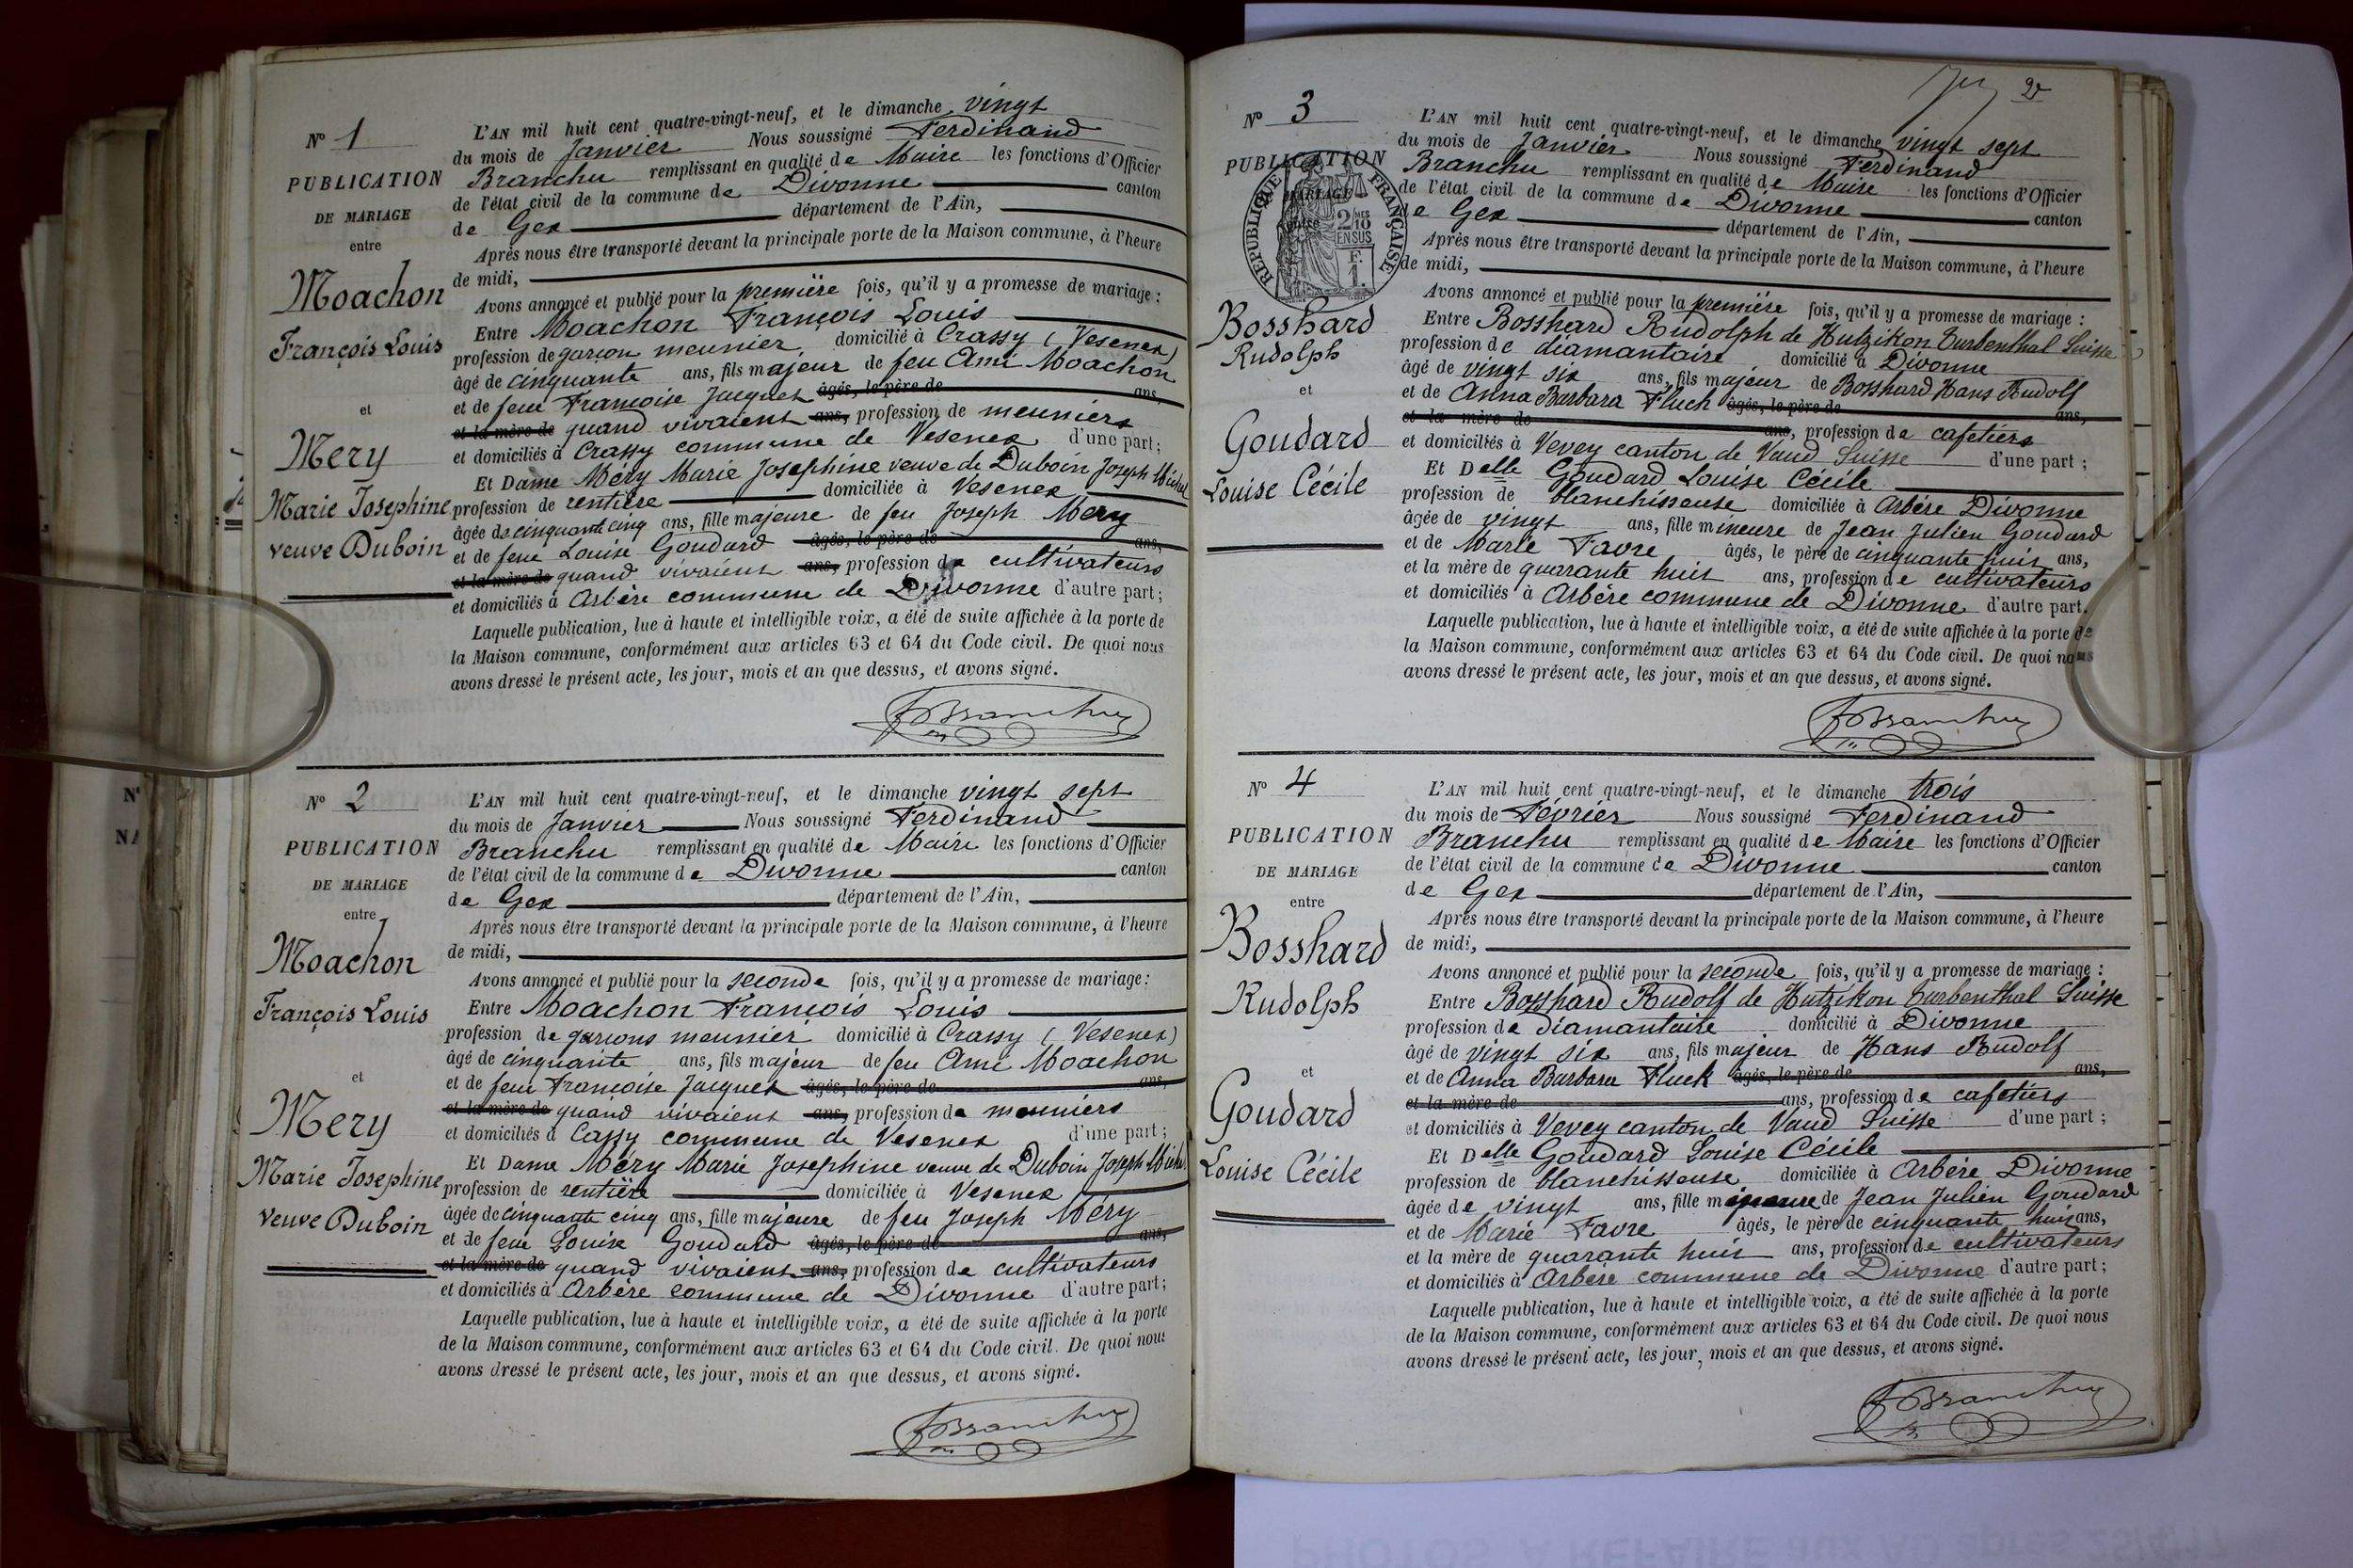 Nº 1
PUBLICATION
DE MARIAGE
entre
Moachon
François Louis
et
Mery
Marie Josephine
veuve Duboin
L'AN mil huit cent quatre-vingt-neuf, et le dimanche vingt
du mois de Janvier Nous soussigné Ferdinand
Branchu remplissant en qualité de Maire les fonctions d'Officier
de l'état civil de la commune de Divonne canton
de Gex département de l'Ain,
Après nous être transporté devant la principale porte de la Maison commune, à l'heure
de midi,
Avons annoncé et publié pour la première fois, qu'il y a promesse de mariage :
Entre Moachon François Louis
profession de garçon meunier domicilié à Crassy (Vesenex)
âgé de cinquante ans, fils majeur de feu Ami Moachon
et de feue Françoise Jacquet âgés, le père de ans,
et la mère de quand vivaient ans, profession de meuniers
et domiciliés à Crassy commune de Vesenex d'une part;
Et Dame Méry Marie Josephine veuve de Duboin Joseph Michel
profession de rentière domiciliée à Vesenex
âgée de cinquante cinq ans, fille majeure de feu Joseph Mery
et de feue Louise Goudard âgés, le père de ans,
et la mère de quand vivaient ans, profession de cultivateurs
et domiciliés à Arbère commune de Divonne d'autre part;
Laquelle publication, lue à haute et intelligible voix, a été de suite affichée à la porte de
la Maison commune, conformément aux articles 63 et 64 du Code civil. De quoi nous
avons dressé le présent acte, les jour, mois et an que dessus, et avons signé.
F Branchu
Nº 2
PUBLICATION
DE MARIAGE
entre
Moachon
François Louis
et
Mery
Marie Josephine
Veuve Duboin
L'AN mil huit cent quatre-vingt-neuf, et le dimanche vingt sept
du mois de Janvier Nous soussigné Ferdinand
Branchu remplissant en qualité de Maire les fonctions d'Officier
de l'état civil de la commune de Divonne canton
de Gex département de l'Ain,
Après nous être transporté devant la principale porte de la Maison commune, à l'heure
de midi,
Avons annoncé et publié pour la seconde fois, qu'il y a promesse de mariage:
Entre Moachon François Louis
profession de garçons meunier domicilié à Crassy (Vesenex)
âgé de cinquante ans, fils majeur de feu Ami Moachon
et de feue Françoise Jacquet âgés, le père de ans,
et la mère de quand vivaient ans, profession de meuniers
et domiciliés à Cassy commune de Vesenex d'une part;
Et Dame Méry Marie Josephine veuve de Duboin Joseph Michel
profession de rentière domiciliée à Vesenex
âgée de cinquante cinq ans, fille majeure de feu Joseph Méry
et de feue Louise Goudard âgés, le père de ans,
et la mère de quand vivaient ans, profession de cultivateurs
et domiciliés à Arbère commune de Divonne d'autre part;
Laquelle publication, lue à haute et intelligible voix, a été de suite affichée à la porte
de la Maison commune, conformément aux articles 63 et 64 du Code civil. De quoi nous
avons dressé le présent acte, les jour, mois et an que dessus, et avons signé.
F Branchu
2
Nº 3
PUBLICATION
DE MARIAGE
entre
RÉPUBLIQUE FRANÇAISE
2/10
EN SUS
F.
1.
Bosshard
Rudolph
et
Goudard
Louise Cécile
L'AN mil huit cent quatre-vingt-neuf, et le dimanche vingt sept
du mois de Janvier Nous soussigné Ferdinand
Branchu remplissant en qualité de Maire les fonctions d'Officier
de l'état civil de la commune de Divonne canton
de Gex département de l'Ain,
Après nous être transporté devant la principale porte de la Maison commune, à l'heure
de midi,
Avons annoncé et publié pour la première fois, qu'il y a promesse de mariage :
Entre Bosshard Rudolph de Hutzikon Turbenthal Suisse
profession de diamantaire domicilié à Divonne
âgé de vingt six ans, fils majeur de Bosshard Hans Rudolf
et de Anna Barbara Fluck âgés, le père de ans,
et la mère de ans, profession de cafetiers
et domiciliés à Vevey canton de Vaud Suisse d'une part ;
Et Delle Goudard Louise Cécile
profession de blanchisseuse domiciliée à Arbère Divonne
âgée de vingt ans, fille mineure de Jean Julien Goudard
et de Marie Favre âgés, le père de cinquante huit ans,
et la mère de quarante huit ans, profession de cultivateurs
et domiciliés à Arbère commune de Divonne d'autre part.
Laquelle publication, lue à haute et intelligible voix, a été de suite affichée à la porte de
la Maison commune, conformément aux articles 63 et 64 du Code civil. De quoi nous
avons dressé le présent acte, les jour, mois et an que dessus, et avons signé.
F Branchu
Nº 4
PUBLICATION
DE MARIAGE
entre
Bosshard
Rudolph
et
Goudard
Louise Cécile
L'AN mil huit cent quatre-vingt-neuf, et le dimanche trois
du mois de Février Nous soussigné Ferdinand
Branchu remplissant en qualité de Maire les fonctions d'Officier
de l'état civil de la commune de Divonne canton
de Gex département de l'Ain,
Après nous être transporté devant la principale porte de la Maison commune, à l'heure
de midi,
Avons annoncé et publié pour la seconde fois, qu'il y a promesse de mariage :
Entre Bosshard Rudolf de Hutzikon Turbenthal Suisse
profession de diamantaire domicilié à Divonne
âgé de vingt six ans, fils majeur de Hans Rudolf
et de Anna Barbara Fluck âgés, le père de ans,
et la mère de ans, profession de cafetiers
et domiciliés à Vevey canton de Vaud Suisse d'une part ;
Et Delle Goudard Louise Cécile
profession de blanchisseuse domiciliée à Arbère Divonne
âgée de vingt ans, fille mineure de Jean Julien Goudard
et de Marie Favre âgés, le père de cinquante huit ans,
et la mère de quarante huit ans, profession de cultivateurs
et domiciliés à Arbère commune de Divonne d'autre part ;
Laquelle publication, lue à haute et intelligible voix, a été de suite affichée à la porte
de la Maison commune, conformément aux articles 63 et 64 du Code civil. De quoi nous
avons dressé le présent acte, les jour, mois et an que dessus, et avons signé.
F Branchu